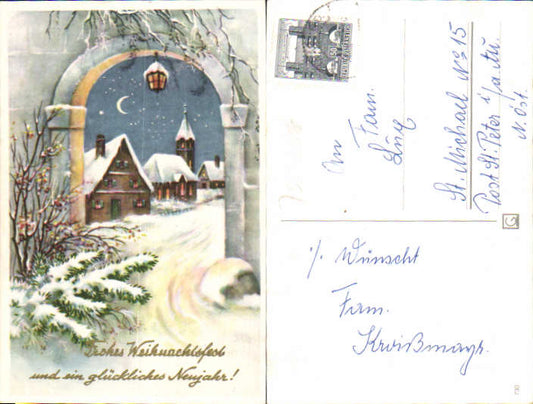 Frohes Weihnachtsfest
und ein glückliches Neujahr!
An
Fam.
St. Michael No 15
Post St. Peter i/a Au
N. Öst.
Wünscht
Fam.
Kroißmayr.
G